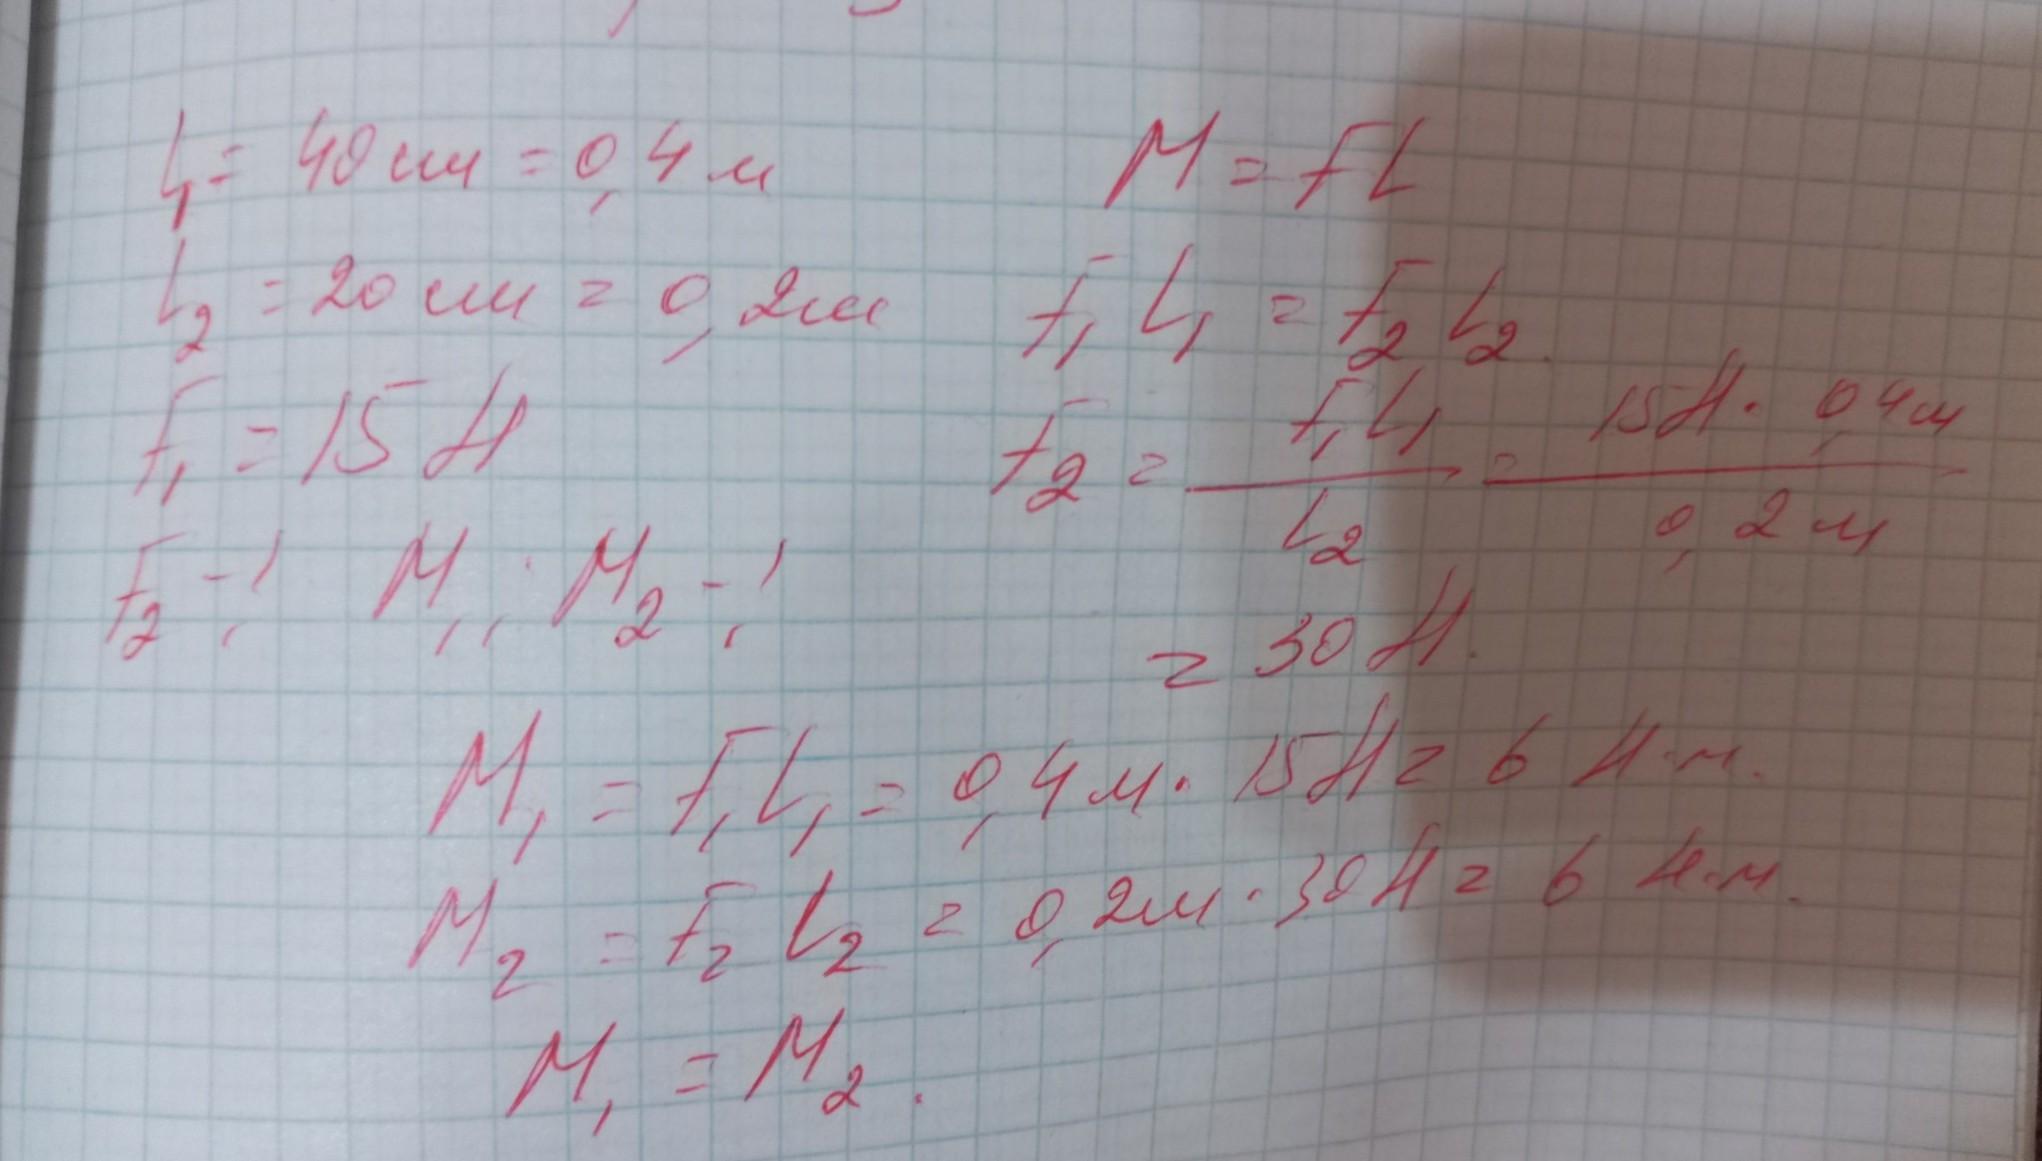 L₁ = 40 см = 0,4 м
L₂ = 20 см = 0,2 м
F₁ = 15 Н
F₂ - ? M₁; M₂ - ?
M = FL
F₁ L₁ = F₂ L₂.
F₂ = F₁L₁ / L₂ = 15Н · 0,4м / 0,2 м
= 30 Н.
M₁ = F₁L₁ = 0,4 м · 15Н = 6 Н·м.
M₂ = F₂ L₂ = 0,2м · 30Н = 6 Н·м.
M₁ = M₂.